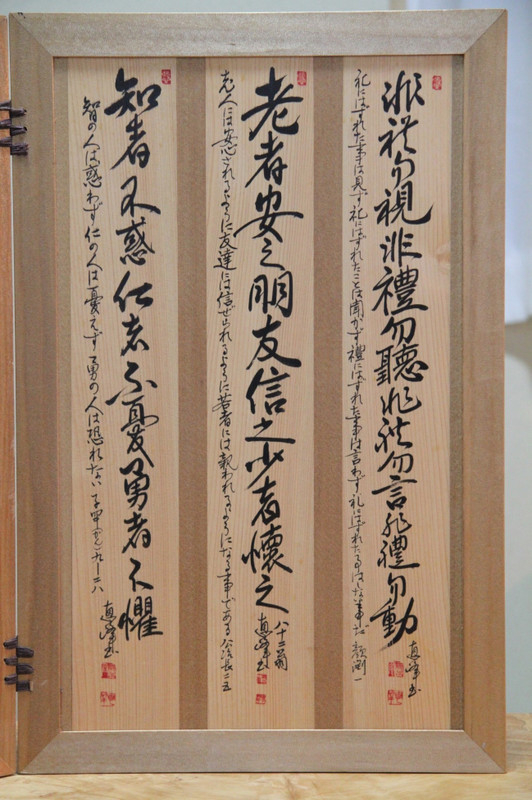 非礼勿視非禮勿聽非礼勿言非禮勿動
礼にはずれた事は見ず礼にはずれたことは聞かず禮にはずれた事は言わず礼にはずれたことはしない事だ 顔渕一
直峰書
老者安之朋友信之少者懐之
八十二翁
直峰書
老人には安心されるように友達には信ぜられるように若者には親われるようになる事である 公冶長二五
知者不惑仁者不憂勇者不懼
直峰書
智の人は惑わず仁の人は憂えず勇の人は恐れない 子罕 九ー二八